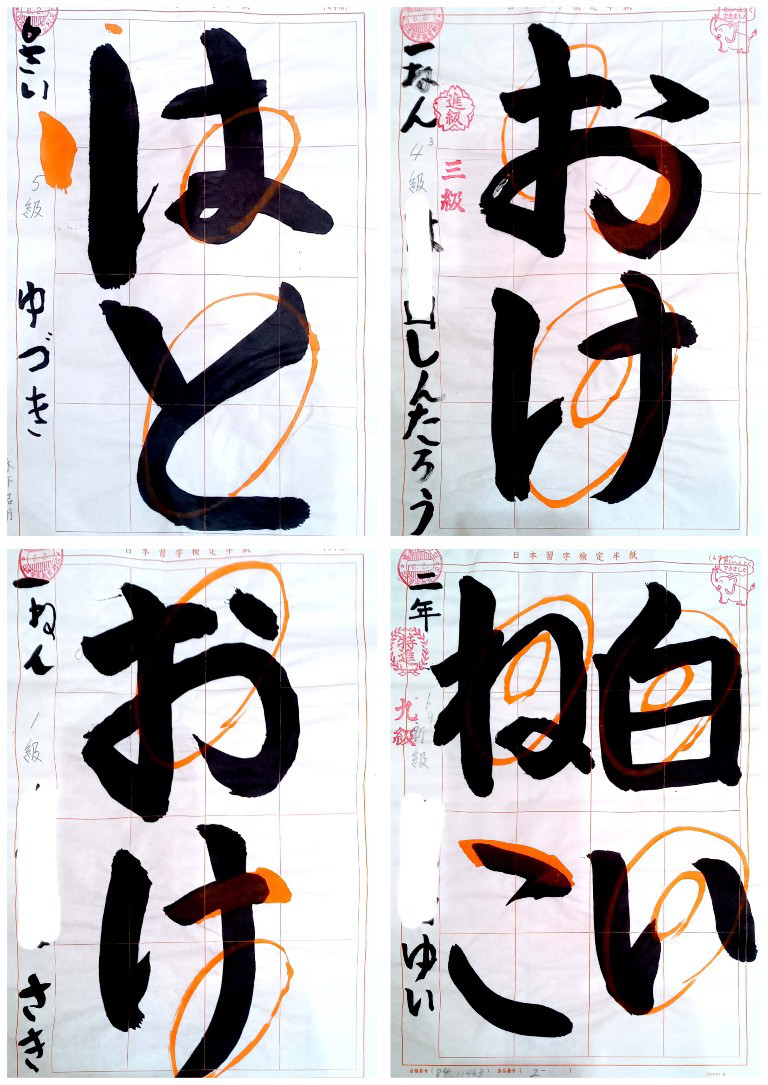 はと
5級
ゆづき
おけ
一ねん
4級
進級
三級
しんたろう
日本習字検定半紙
おけ
一ねん
1級
さき
日本習字検定半紙
白い
ねこ
二年
特進
九級
新級
ゆい